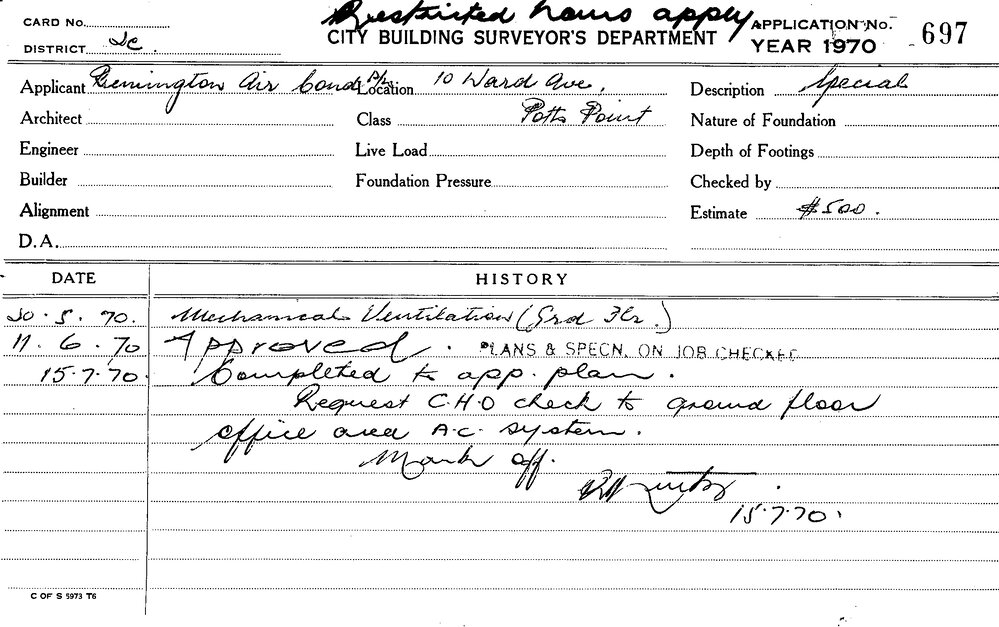 Restricted hours apply
CARD No.
CITY BUILDING SURVEYOR'S DEPARTMENT
APPLICATION No. 697
DISTRICT
YEAR 1970
Applicant Remington Air Cond P/L
Location 10 Ward Ave,
Description Special
Architect
Class Potts Point
Nature of Foundation
Engineer
Live Load
Depth of Footings
Builder
Foundation Pressure
Checked by
Alignment
Estimate $500.
D.A.
DATE HISTORY
20.5.70. Mechanical Ventilation (Grd Flr.)
11.6.70 Approved. PLANS & SPECN. ON JOB CHECKED
15.7.70. Completed to app. plan.
Request C.H.O check to ground floor
office area A.C. system.
Mark off.
15.7.70.
C OF S 5973 T6